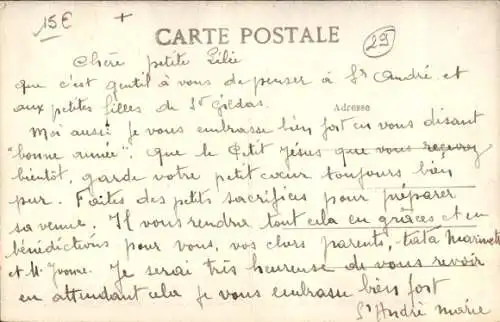 15€ +
CARTE POSTALE
29
Chère petite Lilie
que c'est gentil à vous de penser à Sr André et
aux petites filles de St Gildas.
Adresse
Moi aussi je vous embrasse bien fort en vous disant
"bonne année". Que le Petit Jésus que vous recevrez
bientôt, garde votre petit cœur toujours bien
pur. Faites des petits sacrifices pour préparer
sa venue. Il vous rendra tout cela en grâces et en
bénédictions pour vous, vos chers parents, tata
et M. Yvonne. Je serai très heureuse de vous revoir
en attendant cela je vous embrasse bien fort
Sr André Marie